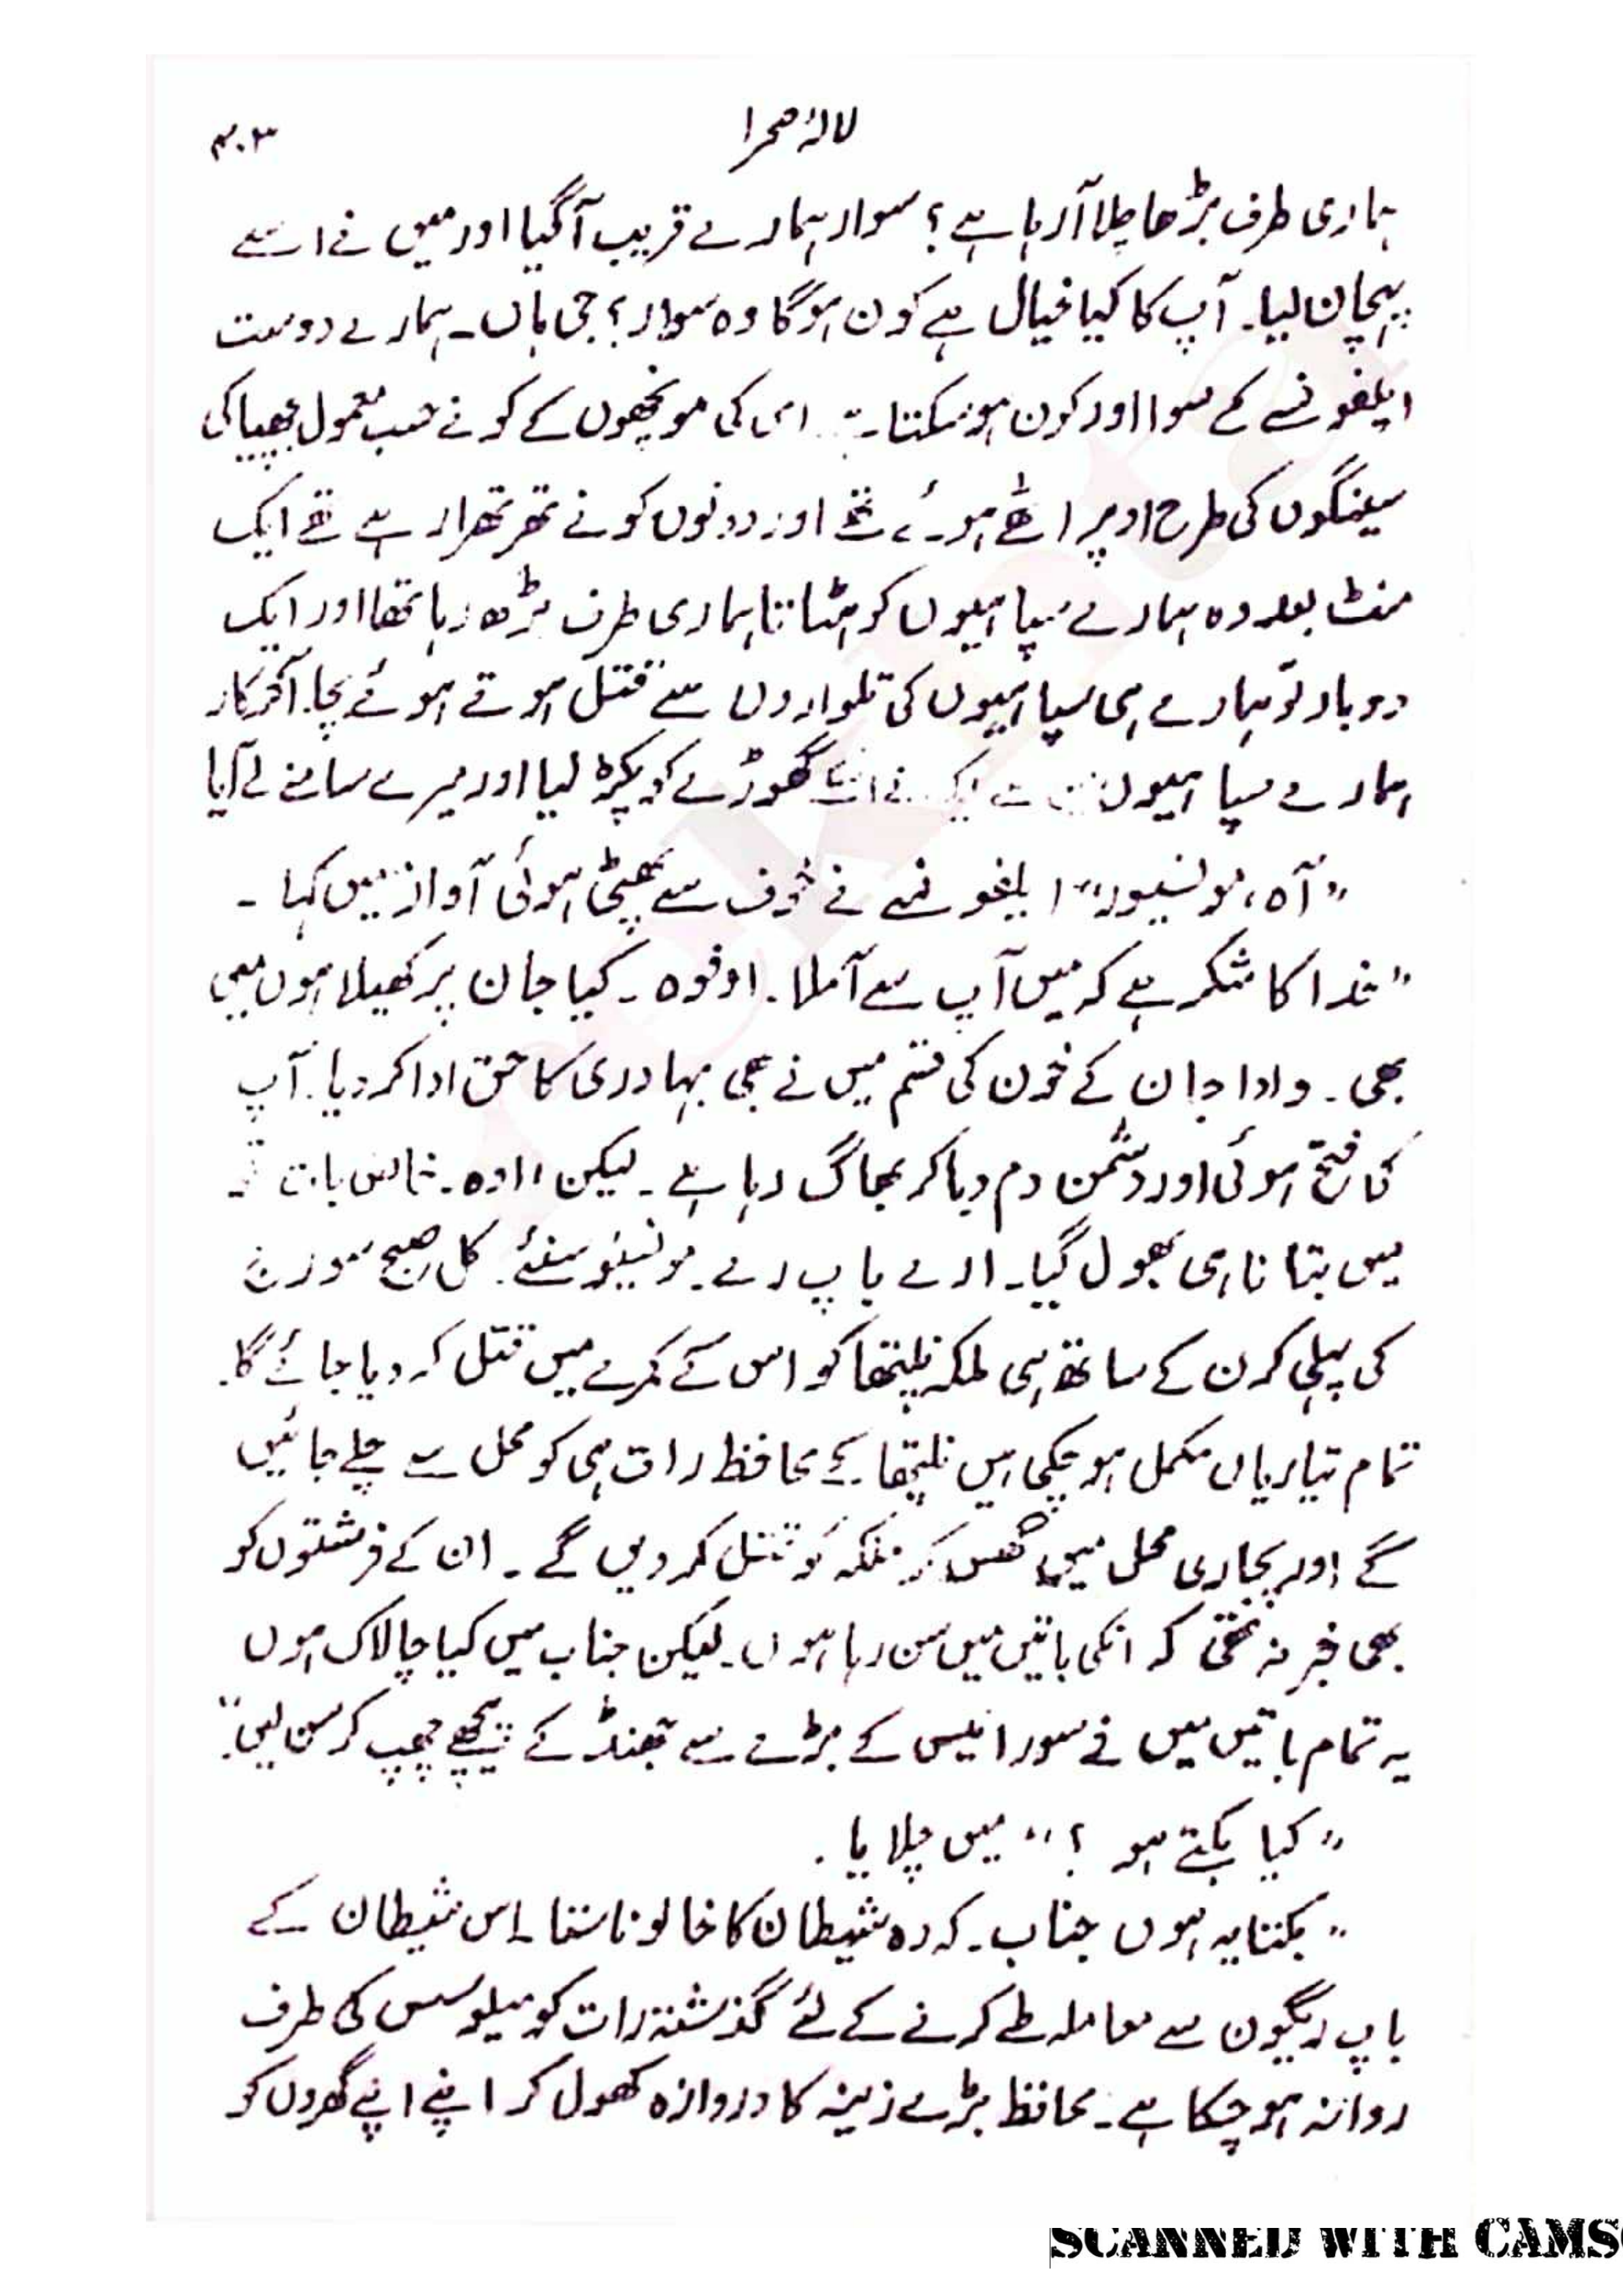 لالۂ صحرا
۴۰۳
ہماری طرف بڑھا چلا آ رہا ہے؟ سوار ہمارے قریب آ گیا اور میں نے اسے
پہچان لیا۔ آپ کا کیا خیال ہے کون ہوگا وہ سوار؟ جی ہاں۔ ہمارے دوست
ایلفونسے کے سوا اور کون ہو سکتا۔ اس کی مونچھوں کے کونے حسب معمول بھپیا کی
سینگوں کی طرح اوپر اٹھے ہوئے تھے اور دونوں کونے تھرتھرا رہے تھے ایک
منٹ بعد وہ ہمارے سپاہیوں کو ہٹاتا ہماری طرف بڑھ رہا تھا اور ایک
دوبار تو ہمارے ہی سپاہیوں کی تلواروں سے قتل ہوتے ہوئے بچا۔ آخرکار
ہمارے سپاہیوں سے ایک نے گھوڑے کو پکڑ لیا اور میرے سامنے لے آیا
”آہ، مونسیور“ ایلفونسے نے خوف سے پھٹی ہوئی آواز میں کہا۔
”خدا کا شکر ہے کہ میں آپ سے آملا۔ اوفوہ۔ کیا جان پر کھیلا ہوں میں
بھی۔ دادا جان کے خون کی قسم میں نے بھی بہادری کا حق ادا کر دیا۔ آپ
کا فتح ہوئی اور دشمن دم دبا کر بھاگ رہا ہے۔ لیکن، اوہ۔ خاص بات تو
میں بتانا ہی بھول گیا۔ ارے باپ رے۔ مونسیو سنئے۔ کل صبح سورج
کی پہلی کرن کے ساتھ ہی ملکہ نلپتھا کو اس کے کمرے میں قتل کر دیا جائے گا۔
تمام تیاریاں مکمل ہو چکی ہیں نلپتھا کے محافظ رات ہی کو محل سے چلے جائیں
گے اور پجاری محل میں گھس کر ملکہ کو قتل کر دیں گے۔ ان کے فرشتوں کو
بھی خبر نہ تھی کہ انکی باتیں میں سن رہا ہوں۔ لیکن جناب میں کیا چالاک ہوں
یہ تمام باتیں میں نے سورائیس کے بڑے سے جھنڈے کے پیچھے چھپ کر سن لیں۔“
”کیا بکتے ہو؟“ میں چلایا۔
”بکتا یہ ہوں جناب۔ کہ وہ شیطان کا خالو ناستا۔ اس شیطان کے
باپ ریگون سے معاملہ طے کرنے کے لئے گذشتہ رات کو میلوسس کی طرف
روانہ ہو چکا ہے۔ محافظ بڑے زینہ کا دروازہ کھول کر اپنے اپنے گھروں کو
SCANNED WITH CAMS